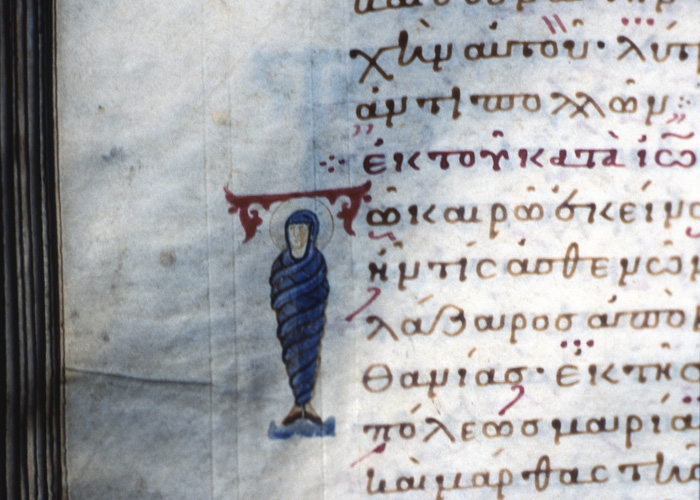 χὴν αὐτοῦ· λύτ
ἀντὶ πολλῶν:
ἐκ τοῦ κατὰ ἰω
Τῶ καιρῶ ἐκείν
ἦν τίς ἀσθενῶν
λάζαρος ἀπὸ
θανίας· ἐκ τῆς
πόλεως μαρία
καὶ μάρθας τῆ